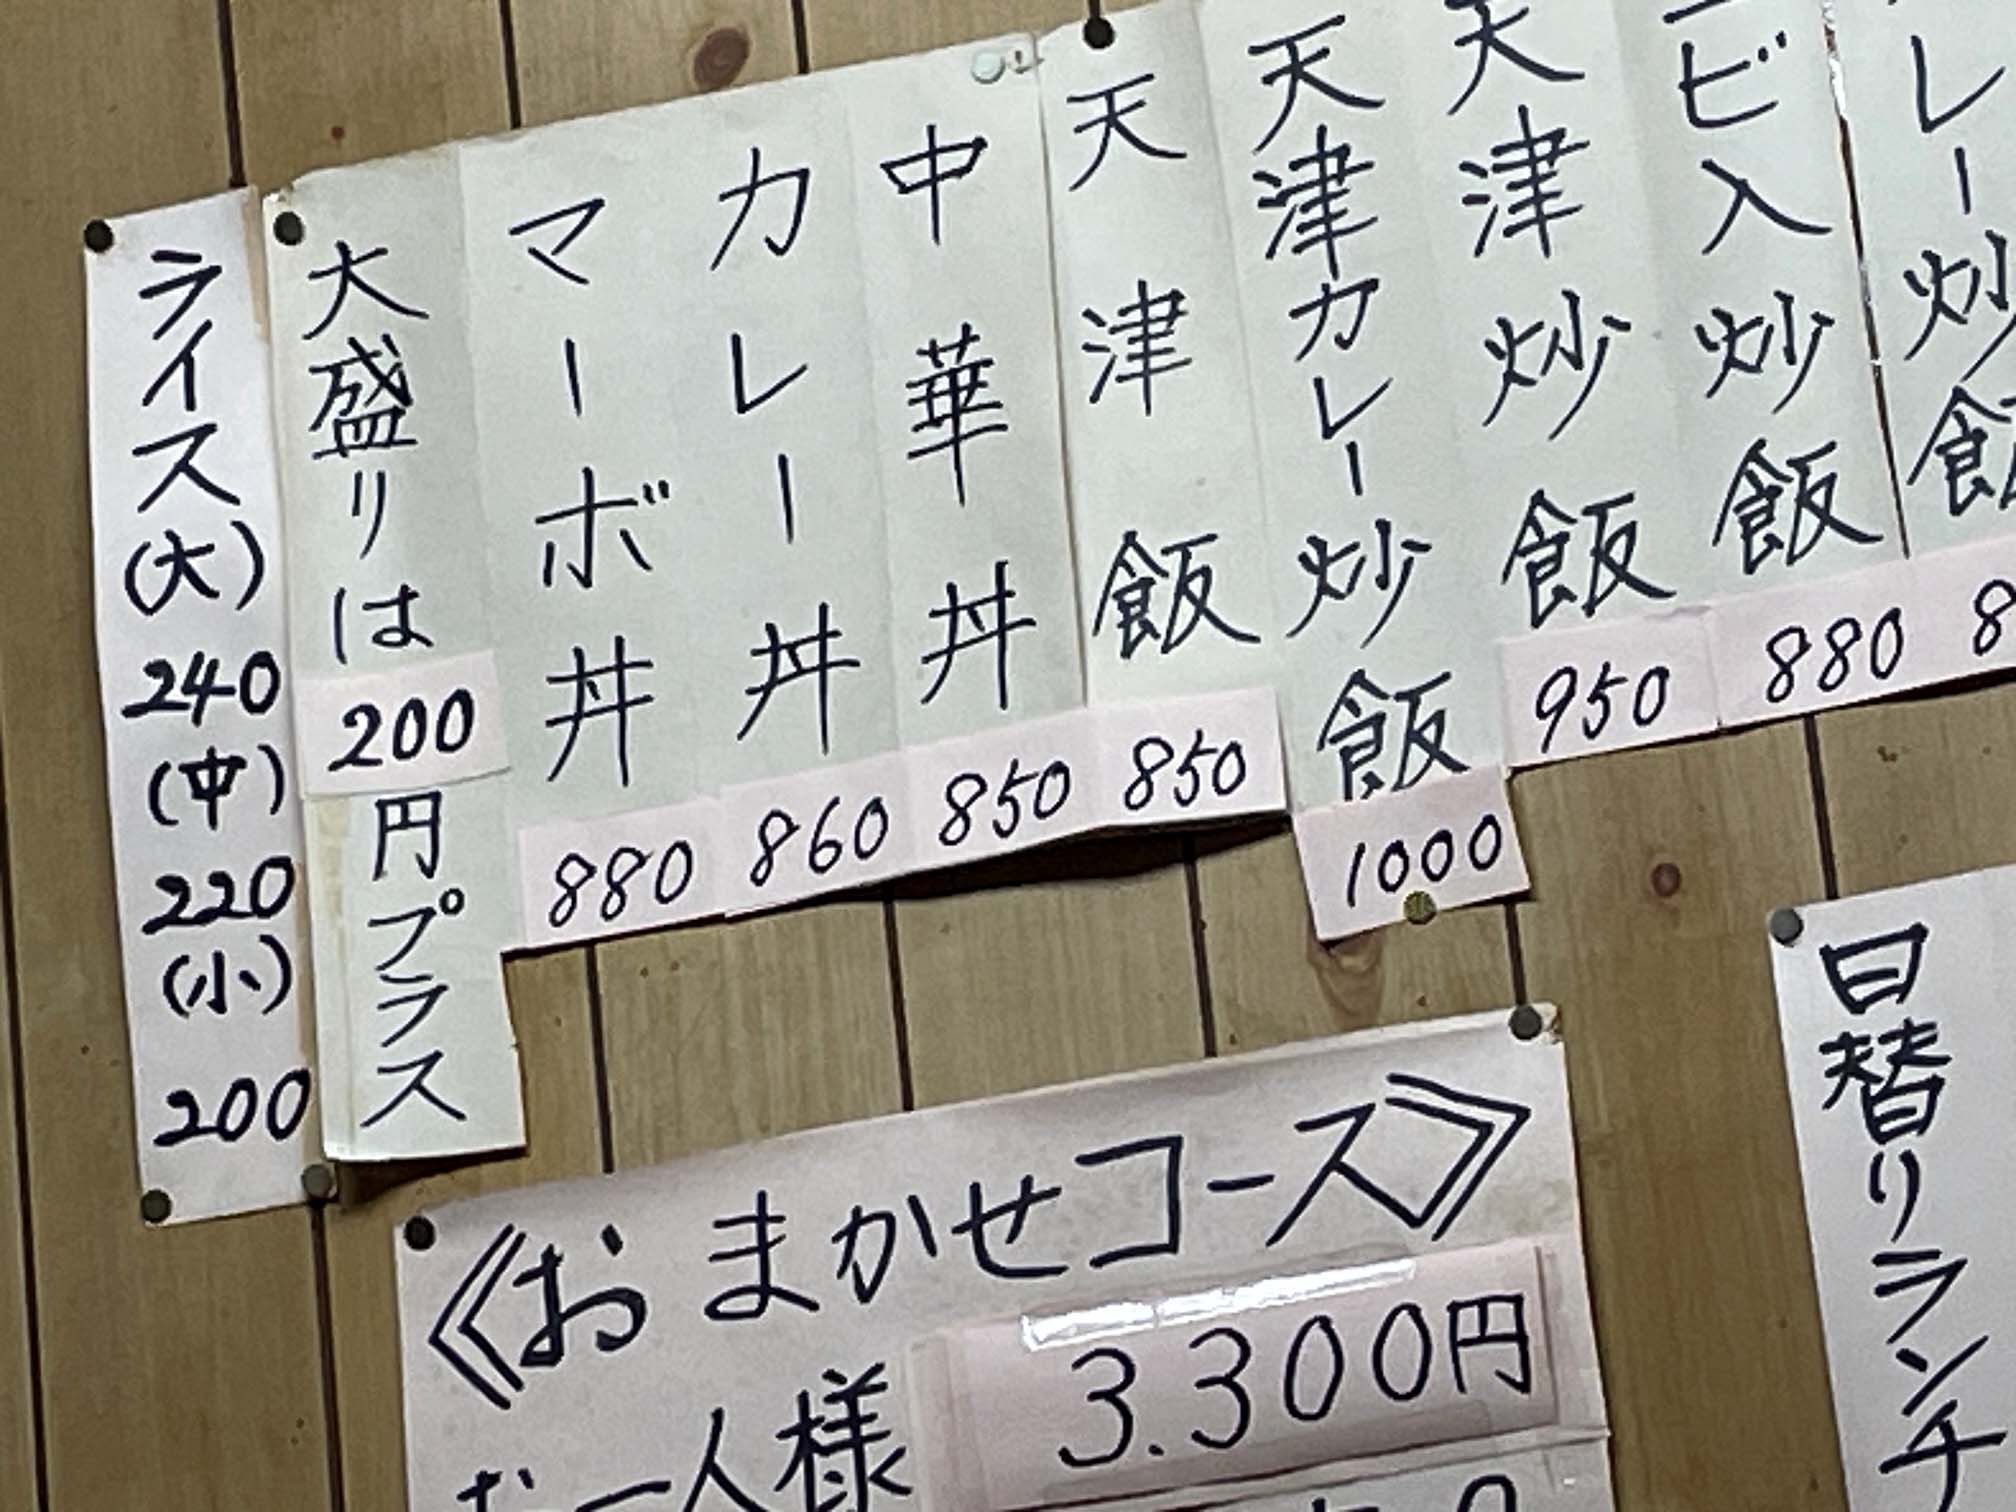 レー炒飯
8
ビ入炒飯
880
天津炒飯
950
天津カレー炒飯
1000
天津飯
850
中華丼
850
カレー丼
860
マーボ丼
880
大盛りは200円プラス
ライス(大)
240
(中)
220
(小)
200
日替りランチ
《おまかせコース》
お一人様 3.300円